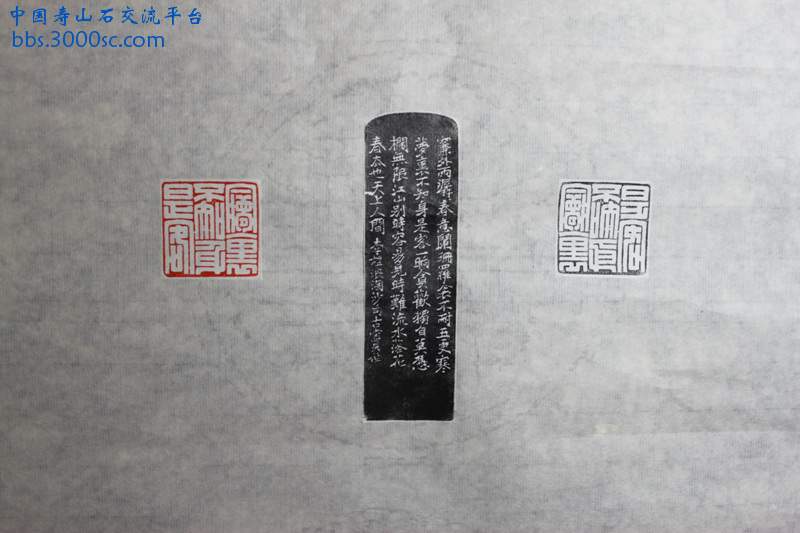 中国寿山石交流平台
bbs.3000sc.com
簾外雨潺々春意闌珊羅衾不耐五更寒
夢裏不知身是客一晌貪歡獨自莫憑
欄無限江山别時容易見時難流水落花
春去也天上人間 李煜浪淘沙
夢裏不知身是客